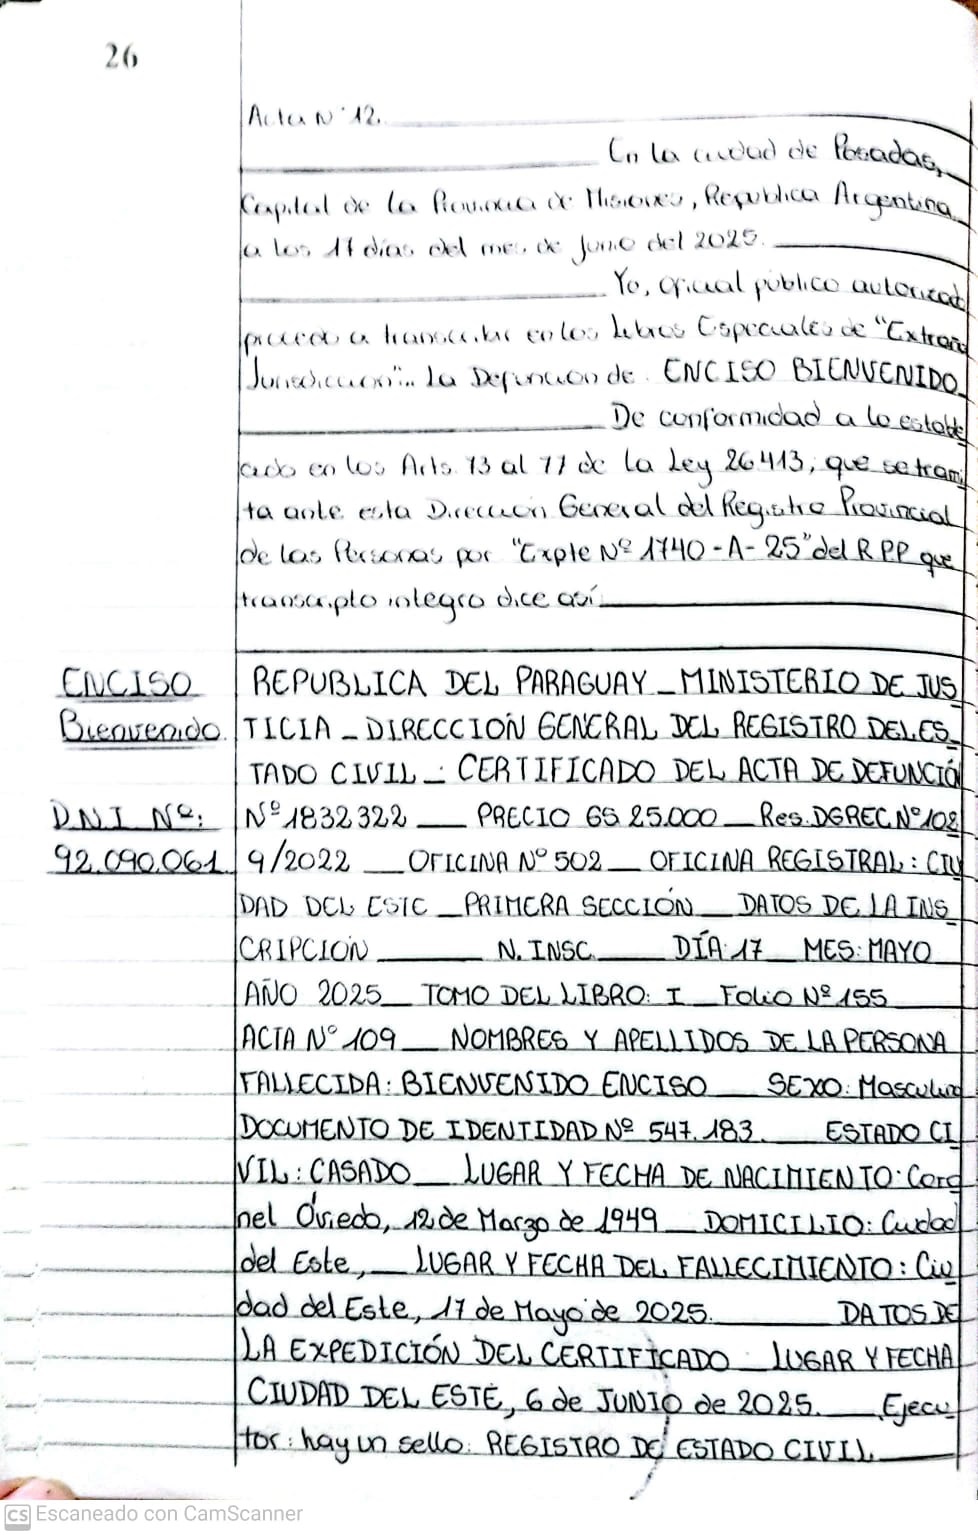 26
Acta N° 12.
En la ciudad de Posadas,
Capital de la Provincia de Misiones, Republica Argentina
a los 17 dias del mes de junio del 2025.
Yo, oficial público autorizad
procedo a transcribir en los Libros Especiales de "Extraña
Jurisdiccion".. La Defuncion de ENCISO BIENVENIDO.
De conformidad a lo estable
cido en los Arts. 73 al 77 de la Ley 26.413, que se trami
ta ante esta Direccion General del Registro Provincial
de las Personas por "Expte Nº 1740-A-25" del R.P.P que
transcripto integro dice así
ENCISO
Bienvenido.
D.N.I Nº:
92.090.061.
REPUBLICA DEL PARAGUAY _ MINISTERIO DE JUS
TICIA _ DIRECCION GENERAL DEL REGISTRO DEL ES_
TADO CIVIL _ CERTIFICADO DEL ACTA DE DEFUNCIÓN
Nº 1832322 __ PRECIO GS 25.000 __ Res. DGREC Nº 102
9/2022 __ OFICINA Nº 502 __ OFICINA REGISTRAL: CIU
DAD DEL ESTE _ PRIMERA SECCIÓN __ DATOS DE LA INS
CRIPCION ____ N. INSC. __ DÍA: 17 __ MES: MAYO
AÑO 2025 __ TOMO DEL LIBRO: I __ Folio Nº 155
ACTA Nº 109 __ NOMBRES Y APELLIDOS DE LA PERSONA
FALLECIDA: BIENVENIDO ENCISO __ SEXO: Masculino
DOCUMENTO DE IDENTIDAD Nº 547.183. __ ESTADO CI
VIL: CASADO __ LUGAR Y FECHA DE NACIMIENTO: Coro
nel Óviedo, 12 de Marzo de 1949 __ DOMICILIO: Ciudad
del Este, __ LUGAR Y FECHA DEL FALLECIMIENTO: Ciu
dad del Este, 17 de Mayo de 2025. ____ DATOS DE
LA EXPEDICIÓN DEL CERTIFICADO __ LUGAR Y FECHA
CIUDAD DEL ESTE, 6 de JUNIO de 2025. __ Ejecu
tor: hay un sello: REGISTRO DE ESTADO CIVIL __
CS Escaneado con CamScanner